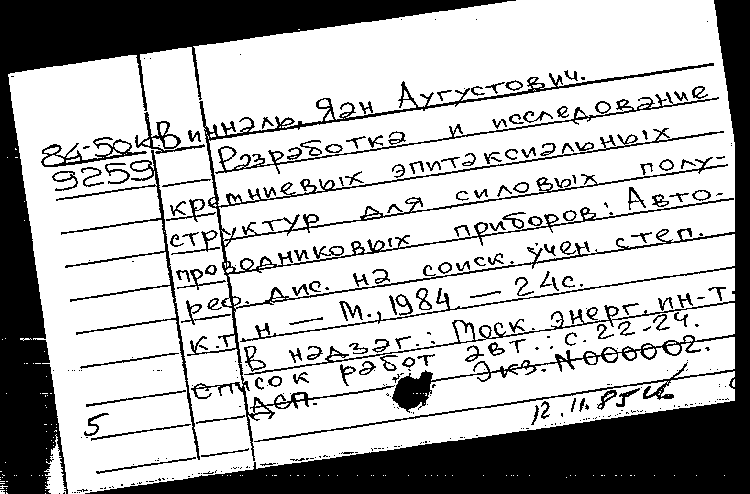 84-50к Виннэль, Яэн Аугустович.
9259 Разработка и исследование
кремниевых эпитаксиальных
структур для силовых полу-
проводниковых приборов: Авто-
реф. дис. на соиск. учен. степ.
к.т.н. — М., 1984 — 24с.
В надзаг.: Моск. энерг. ин-т.
Список работ авт.: с.22-24.
ДСП. Экз. N000002.
5
12.11.85